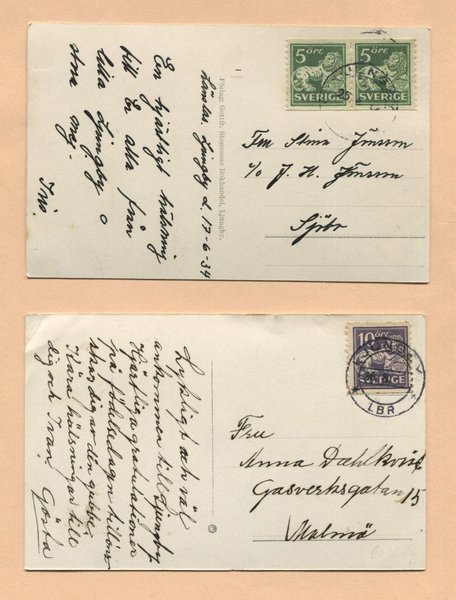 En hjärtligt hälsning
till Er alla från
lilla Ljungby o
stora mig.
Förlag: Gottfr. Stensson Bokhandel, Ljungby.
Ljungby d. 17-6-34
5 ÖRE 5 ÖRE
SVERIGE SVERIGE
Frn Stina Jönsson
c/o J. H. Jönsson
Sjöbo
Lyckligt och väl
ankommen till Ljungby
Hjärtliga gratulationer
på födelsedagen
dig av din
Kära hälsningar till
dig och Ivan Gösta
10 ÖRE
SVERIGE
LJUNGBY
LBR
Fru
Anna Dahlkvist
Gasverksgatan 15
Malmö